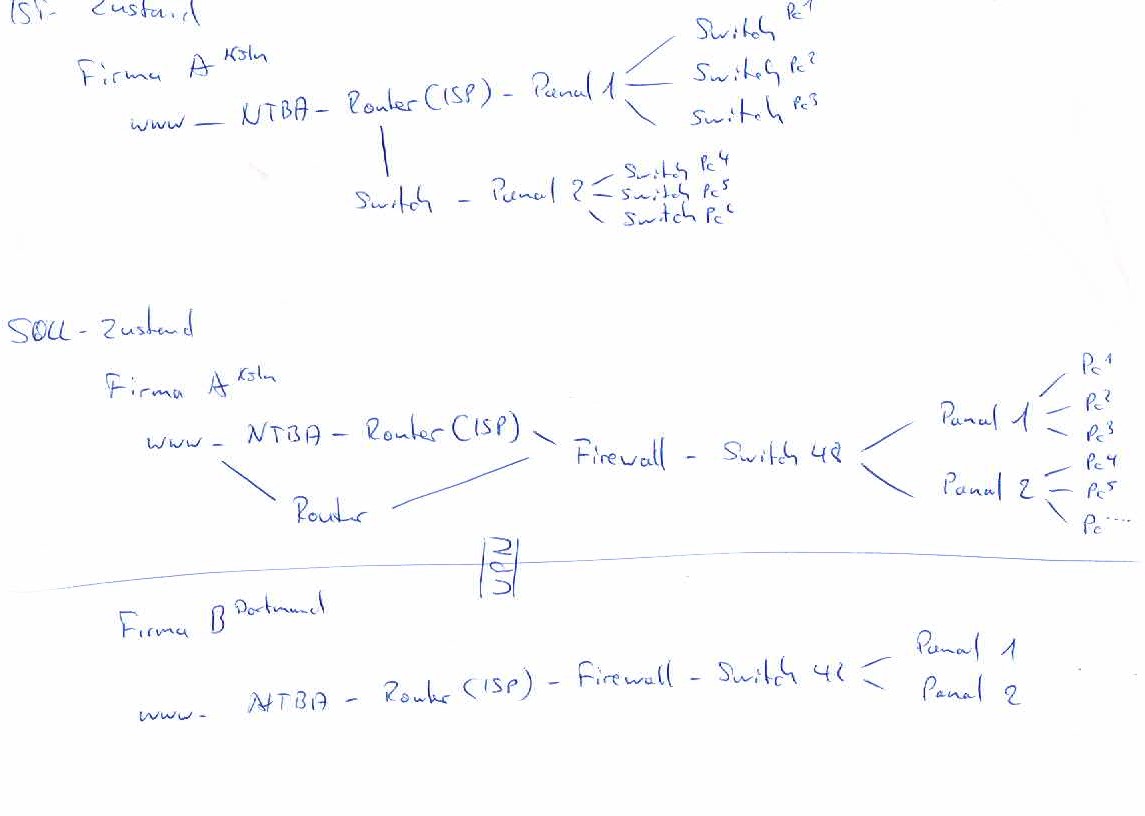 IST- Zustand
Firma A Köln
www — NTBA - Router (ISP) - Panal 1
Switch Pc1
Switch Pc2
Switch Pc3
Switch - Panal 2
Switch Pc4
Switch Pc5
Switch Pc6
SOLL - Zustand
Firma A Köln
www - NTBA - Router (ISP)
Router
Firewall - Switch 48
Panal 1
Pc1
Pc2
Pc3
Panal 2
Pc4
Pc5
Pc....
Firma B Dortmund
www- NTBA - Router (ISP) - Firewall - Switch 48
Panal 1
Panal 2